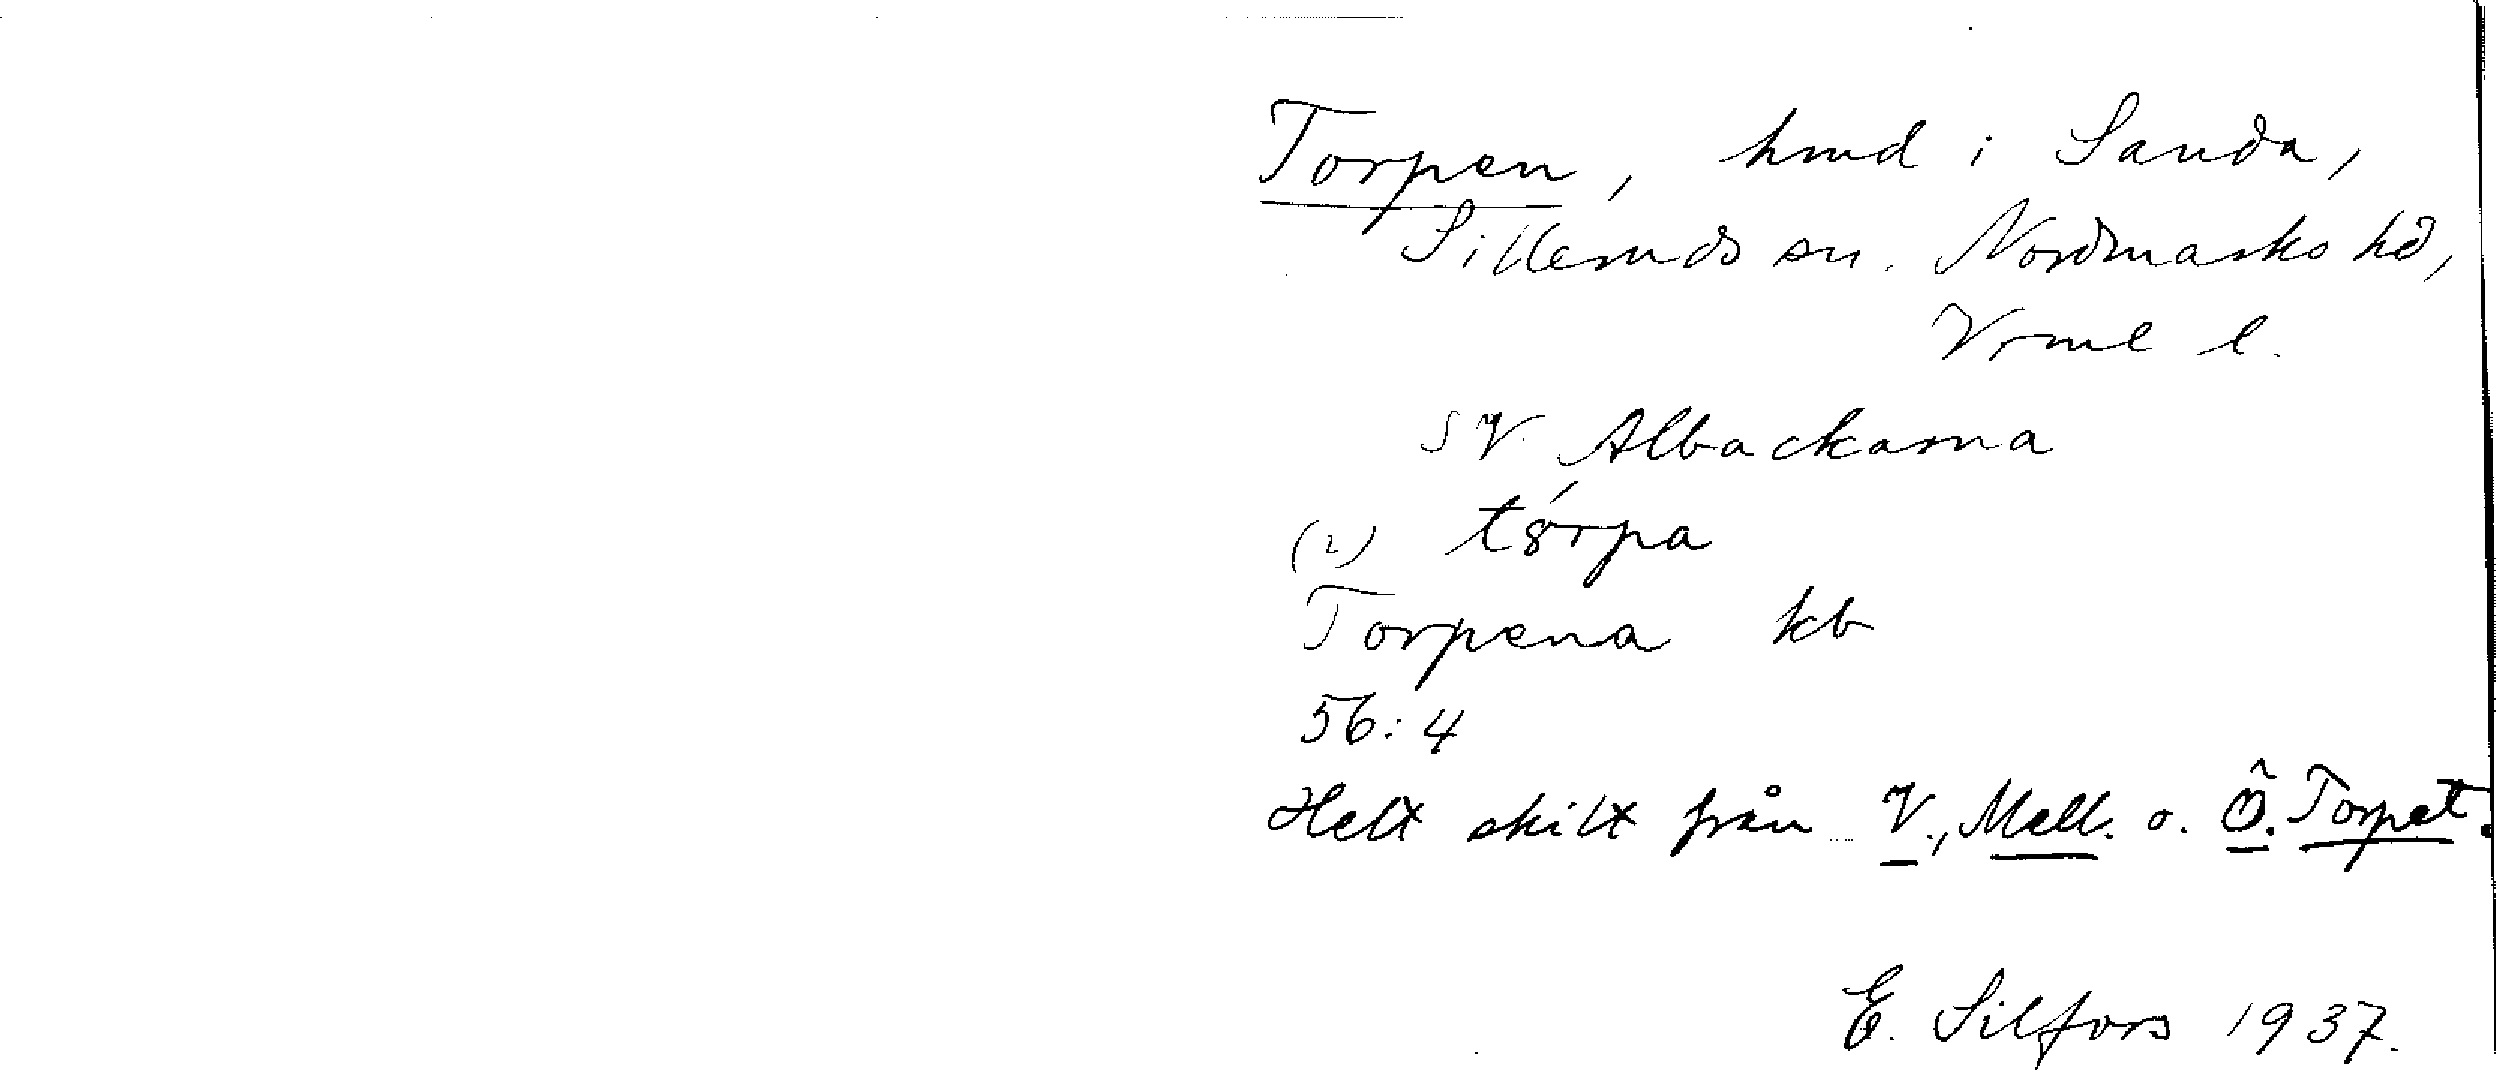 Torpen, hmd i Sanda,
Silleruds sn. Nordmarks hd,
Vrml l.
SV Albackarna
(2) tórpa
Torpena kb
56:4
Helt skilt från V., Mell. o. Ö. Torpet.
E. Silfors 1937.